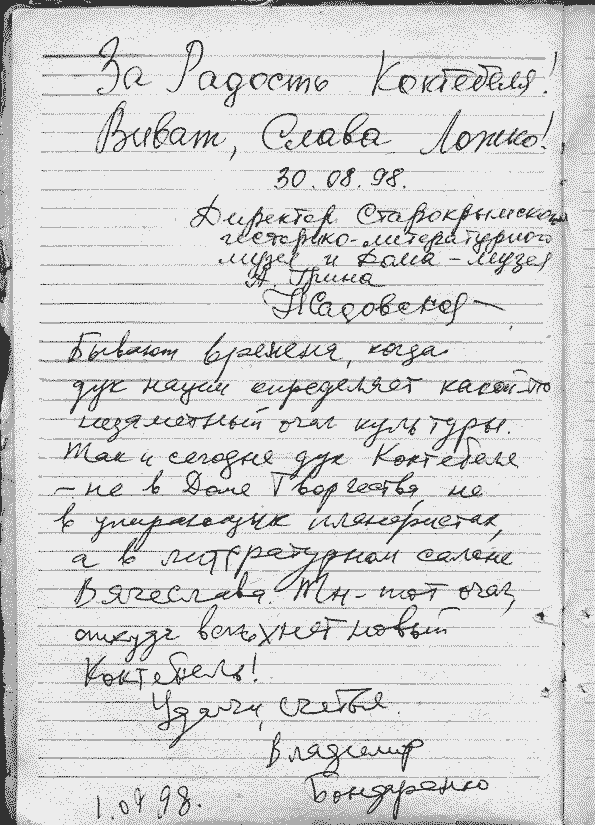 За Радость Коктебеля!
Виват, Слава Ложко!
30.08.98.
Директор Старокрымского
историко-литературного
музея и Дома-музея
А. Грина
Бывают времена, когда
дух нации определяет какой-то
незаметный очаг культуры.
Так и сегодня дух Коктебеля
- не в Доме Творчества, не
в умирающих планеристах,
а в литературном салоне
Вячеслава. Ты - тот очаг,
откуда вспыхнет новый
Коктебель!
Удачи, счастья.
Владимир
Бондаренко
98.